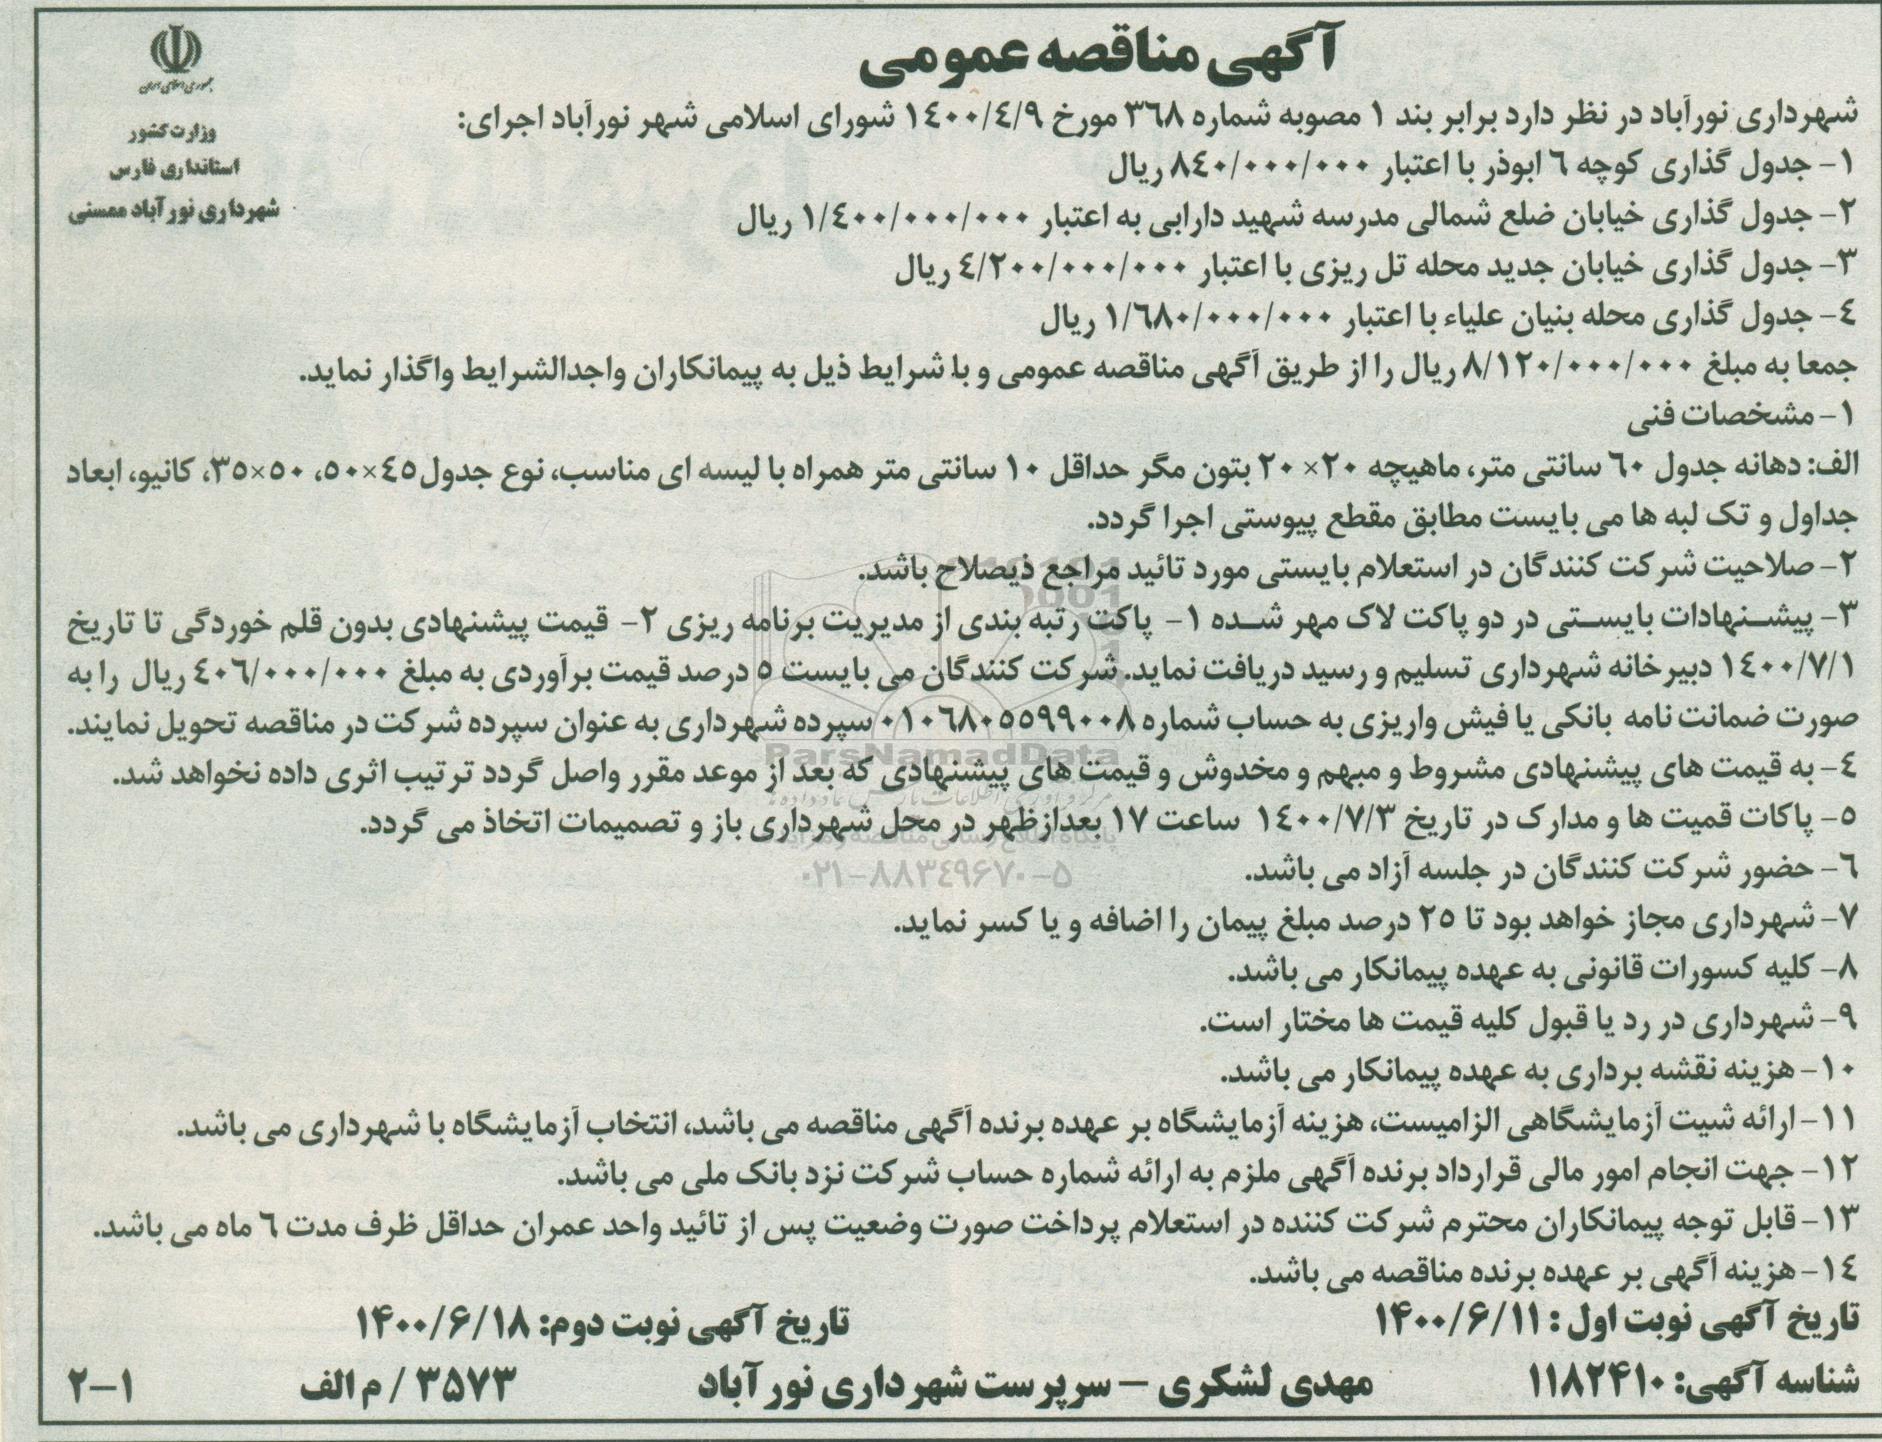 آگهی مناقصه عمومی
جمهوری اسلامی ایران
وزارت کشور
استانداری فارس
شهرداری نورآباد ممسنی
شهرداری نورآباد در نظر دارد برابر بند ۱ مصوبه شماره ۳٦۸ مورخ ۱٤۰۰/٤/۹ شورای اسلامی شهر نورآباد اجرای:
۱- جدول گذاری کوچه ٦ ابوذر با اعتبار ۸٤۰/۰۰۰/۰۰۰ ریال
۲- جدول گذاری خیابان ضلع شمالی مدرسه شهید دارابی به اعتبار ۱/٤۰۰/۰۰۰/۰۰۰ ریال
۳- جدول گذاری خیابان جدید محله تل ریزی با اعتبار ٤/۲۰۰/۰۰۰/۰۰۰ ریال
٤- جدول گذاری محله بنیان علیاء با اعتبار ۱/٦۸۰/۰۰۰/۰۰۰ ریال
جمعا به مبلغ ۸/۱۲۰/۰۰۰/۰۰۰ ریال را از طریق آگهی مناقصه عمومی و با شرایط ذیل به پیمانکاران واجدالشرایط واگذار نماید.
۱- مشخصات فنی
الف: دهانه جدول ٦۰ سانتی متر، ماهیچه ۲۰×۲۰ بتون مگر حداقل ۱۰ سانتی متر همراه با لیسه ای مناسب، نوع جدول ٤٥×٥۰، ٥۰×۳٥، کانیو، ابعاد
جداول و تک لبه ها می بایست مطابق مقطع پیوستی اجرا گردد.
۲- صلاحیت شرکت کنندگان در استعلام بایستی مورد تائید مراجع ذیصلاح باشد.
۳- پیشنهادات بایستی در دو پاکت لاک مهر شده ۱- پاکت رتبه بندی از مدیریت برنامه ریزی ۲- قیمت پیشنهادی بدون قلم خوردگی تا تاریخ
۱٤۰۰/۷/۱ دبیرخانه شهرداری تسلیم و رسید دریافت نماید. شرکت کنندگان می بایست ٥ درصد قیمت برآوردی به مبلغ ٤۰٦/۰۰۰/۰۰۰ ریال را به
صورت ضمانت نامه بانکی یا فیش واریزی به حساب شماره ۰۱۰٦۸۰٥٥۹۹۰۰۸ سپرده شهرداری به عنوان سپرده شرکت در مناقصه تحویل نمایند.
٤- به قیمت های پیشنهادی مشروط و مبهم و مخدوش و قیمت های پیشنهادی که بعد از موعد مقرر واصل گردد ترتیب اثری داده نخواهد شد.
٥- پاکات قمیت ها و مدارک در تاریخ ۱٤۰۰/۷/۳ ساعت ۱۷ بعدازظهر در محل شهرداری باز و تصمیمات اتخاذ می گردد.
٦- حضور شرکت کنندگان در جلسه آزاد می باشد.
۷- شهرداری مجاز خواهد بود تا ۲٥ درصد مبلغ پیمان را اضافه و یا کسر نماید.
۸- کلیه کسورات قانونی به عهده پیمانکار می باشد.
۹- شهرداری در رد یا قبول کلیه قیمت ها مختار است.
۱۰- هزینه نقشه برداری به عهده پیمانکار می باشد.
۱۱- ارائه شیت آزمایشگاهی الزامیست، هزینه آزمایشگاه بر عهده برنده آگهی مناقصه می باشد، انتخاب آزمایشگاه با شهرداری می باشد.
۱۲- جهت انجام امور مالی قرارداد برنده آگهی ملزم به ارائه شماره حساب شرکت نزد بانک ملی می باشد.
۱۳- قابل توجه پیمانکاران محترم شرکت کننده در استعلام پرداخت صورت وضعیت پس از تائید واحد عمران حداقل ظرف مدت ٦ ماه می باشد.
۱٤- هزینه آگهی بر عهده برنده مناقصه می باشد.
تاریخ آگهی نوبت اول : ۱۴۰۰/۶/۱۱ تاریخ آگهی نوبت دوم: ۱۴۰۰/۶/۱۸
شناسه آگهی: ۱۱۸۲۴۱۰ مهدی لشکری - سرپرست شهرداری نورآباد ۳۵۷۳ / م الف ۲-۱
ParsNamadData
پایگاه اطلاع رسانی مناقصه و مزایده
۰۲۱-۸۸۳۴۹۶۷۰-۵